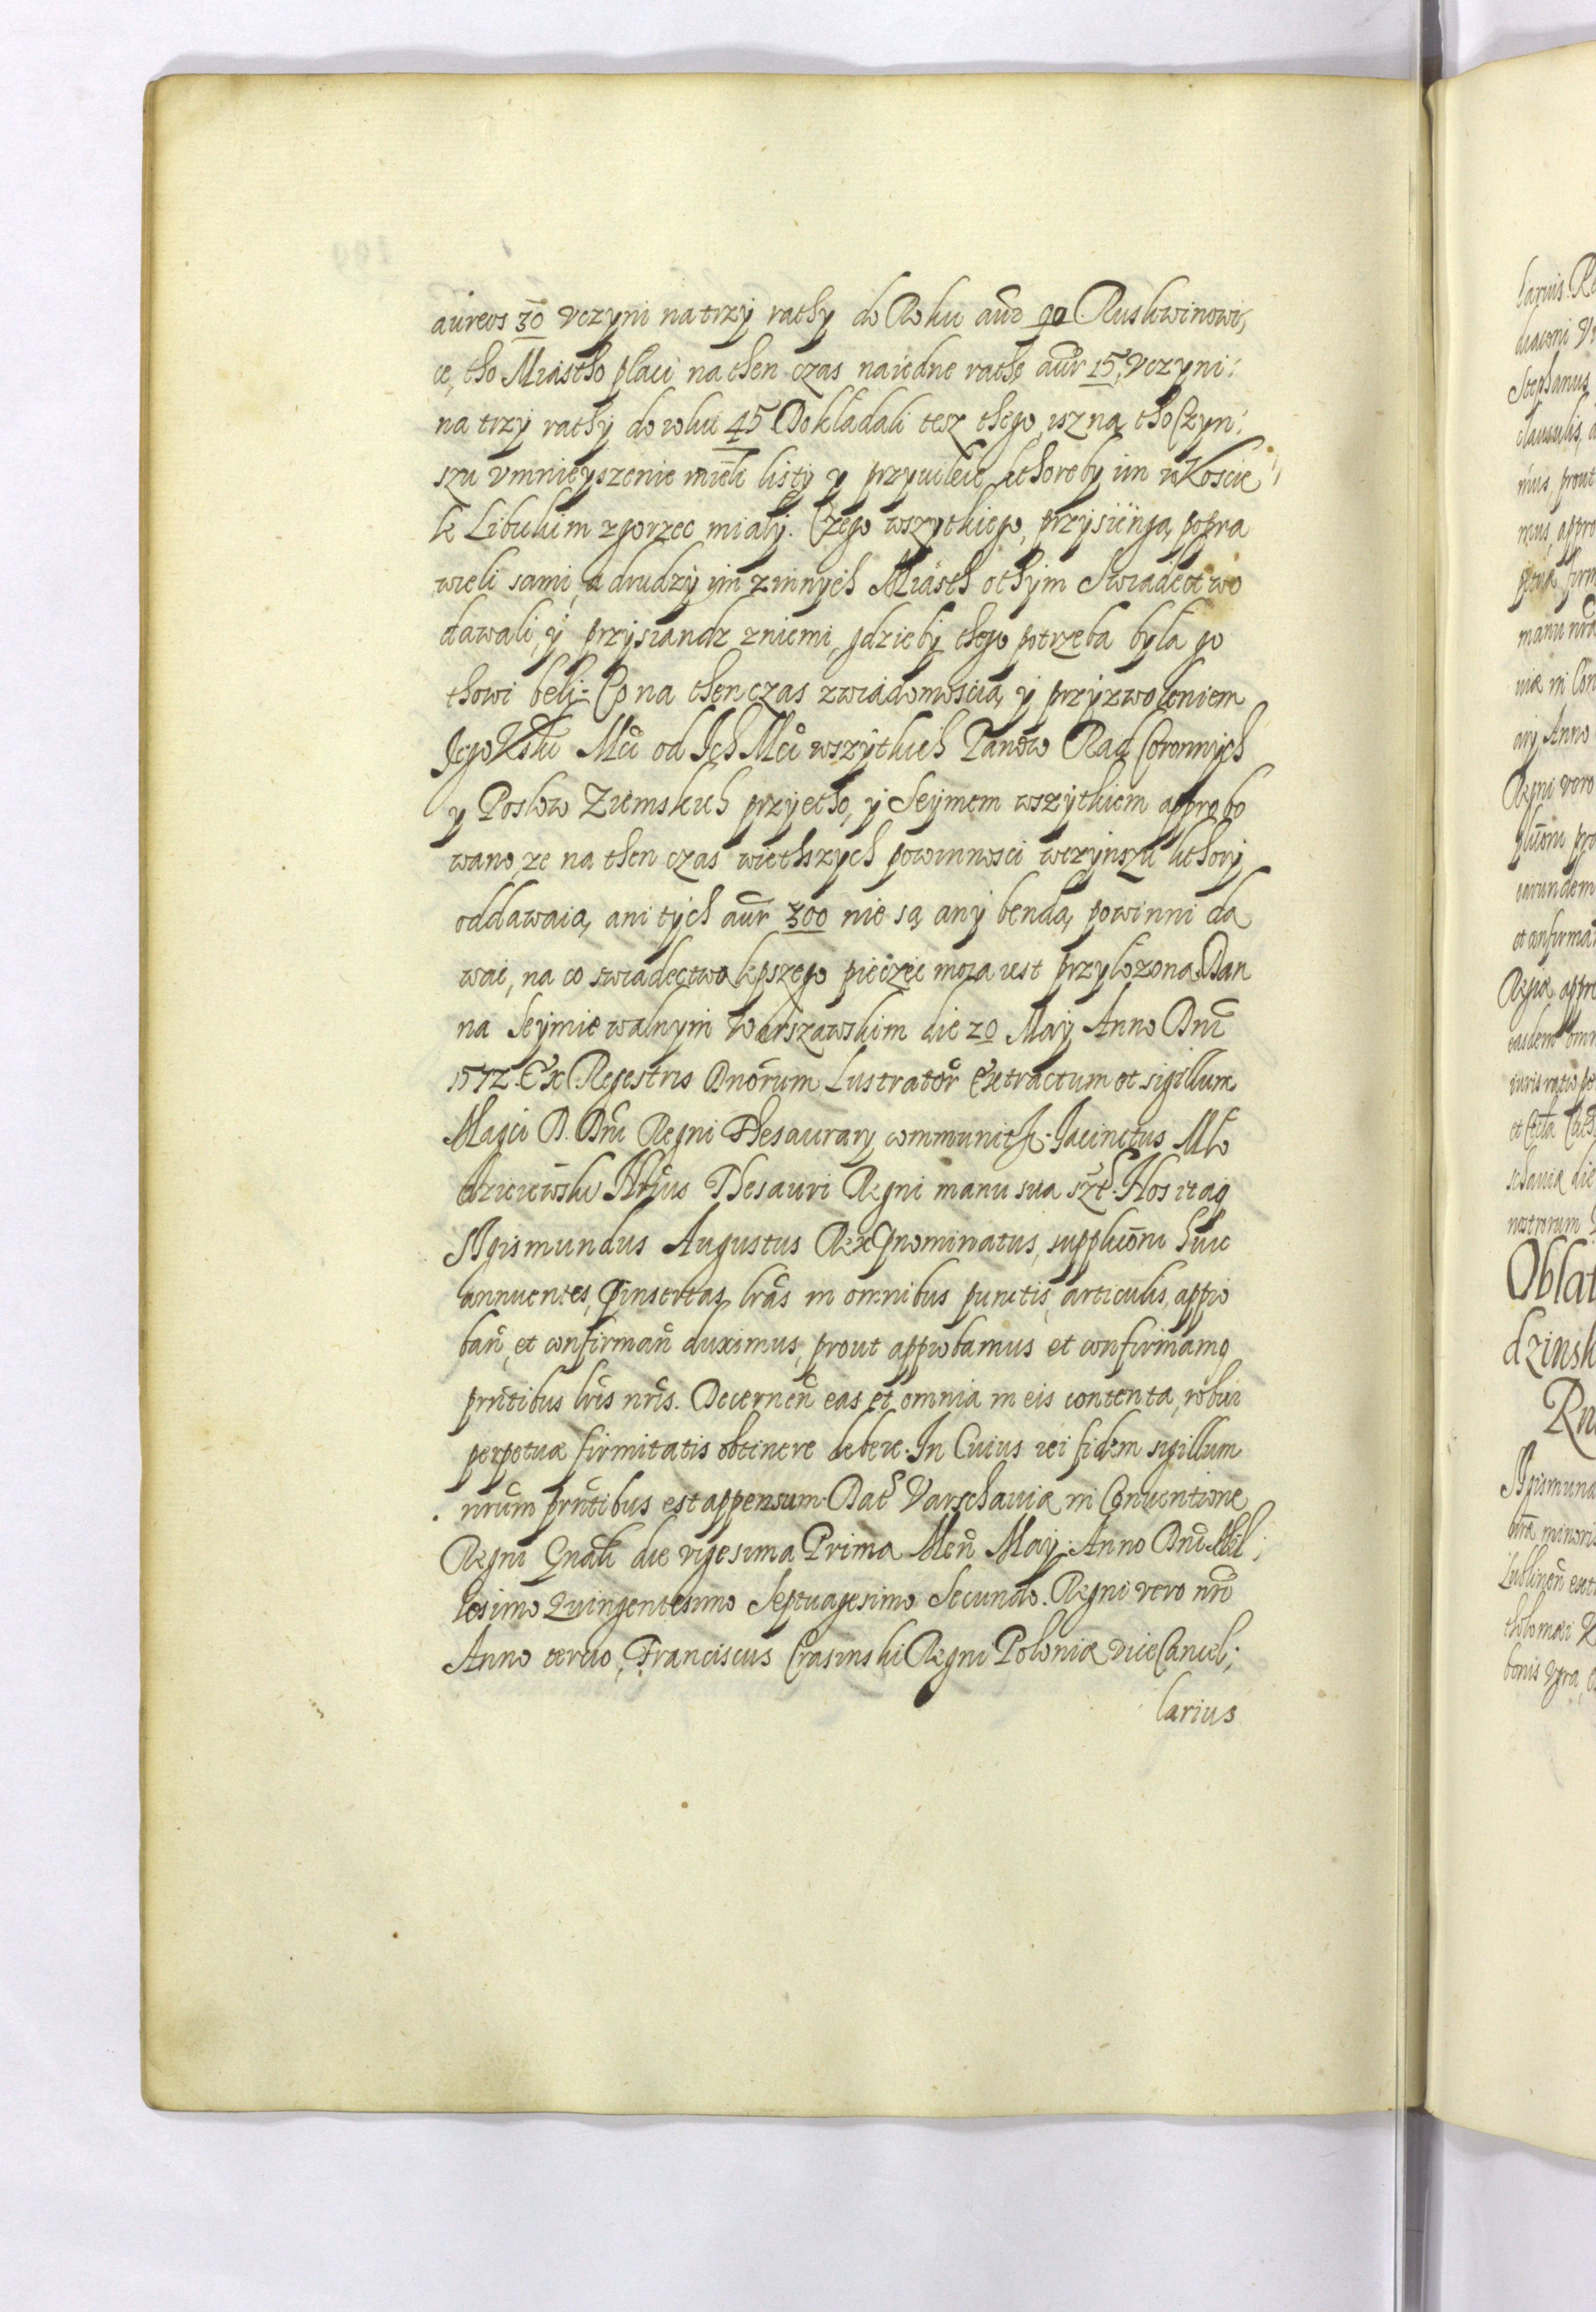 aureos 30 Vczyni na trzy rathy do Roku aur̃ 90 Ruskwinowi,
ce, tho Miastho płaci na then czas na iedne rathe aur̃ 15, Vczyni:
na trzy rathy do roku 45 Dokładali tesz thego, isz na tho Czyn:
szu vmnieyszenie mieli listy y przywileie kthoreby im w Koscie
le Libuskim zgorzec miały. Czego wszytkiego, przysięnga, popra
wieli sami, a drudzy im z innych Miasth o thym Swiadectwo
dawali, y przysiandz z niemi, gdzieby thego potrzeba była go
thowi beli: Co na then czas z wiadomoscią, y przyzwoleniem
Jego K Mci od Ich Mci wszytkich Panow Rad Coronnych
y Posłow Ziemskich przyietho, y Seymem wszytkiem approbo
wano, ze na then czas wiethszych powinnosci w czynszu kthory
oddawaia, ani tych aur̃ 300 nie są any benda, powinni da
wac, na co swiadectwo lepszego pieczęc moia iest przyłozona. Dan
na Seymie walnym Warszawskim die 20 Maij Anno Dñi
1572. Ex Regestris Dñorum Lustrator̃ Extractum et sigillum
Magci D. Dñi Regni Thesaurarij communit̃. Jacinctus Mło
dzieiewski Thesauri Regni manu sua sszt. Nos itaq
Sigismundus Augustus Rex Pnominatus, supplicõni huic
annuentes, Pinsertas lrãs in omnibus punctis, articulis, appro
ban̄, et confirman̄ duximus, prout approbamus et confirmamq
prñtibus lrĩs nrĩs. Decernen̄ eas et omnia in eis contenta, robur
perpetuæ firmitatis obtinere debere. In Cuius rei fidem sigillum
nrũm prñtibus est appensum. Dat̃ Varschauiæ in Conuentione
Regni Gñali die vigesima Prima Men̄ Maij Anno Dñi Mil,
lesimo Quingentesimo Septuagesimo Secundo. Regni vero nrĩ
Anno Franciscus Crasinski Regni Poloniæ ViceCancel;
larius